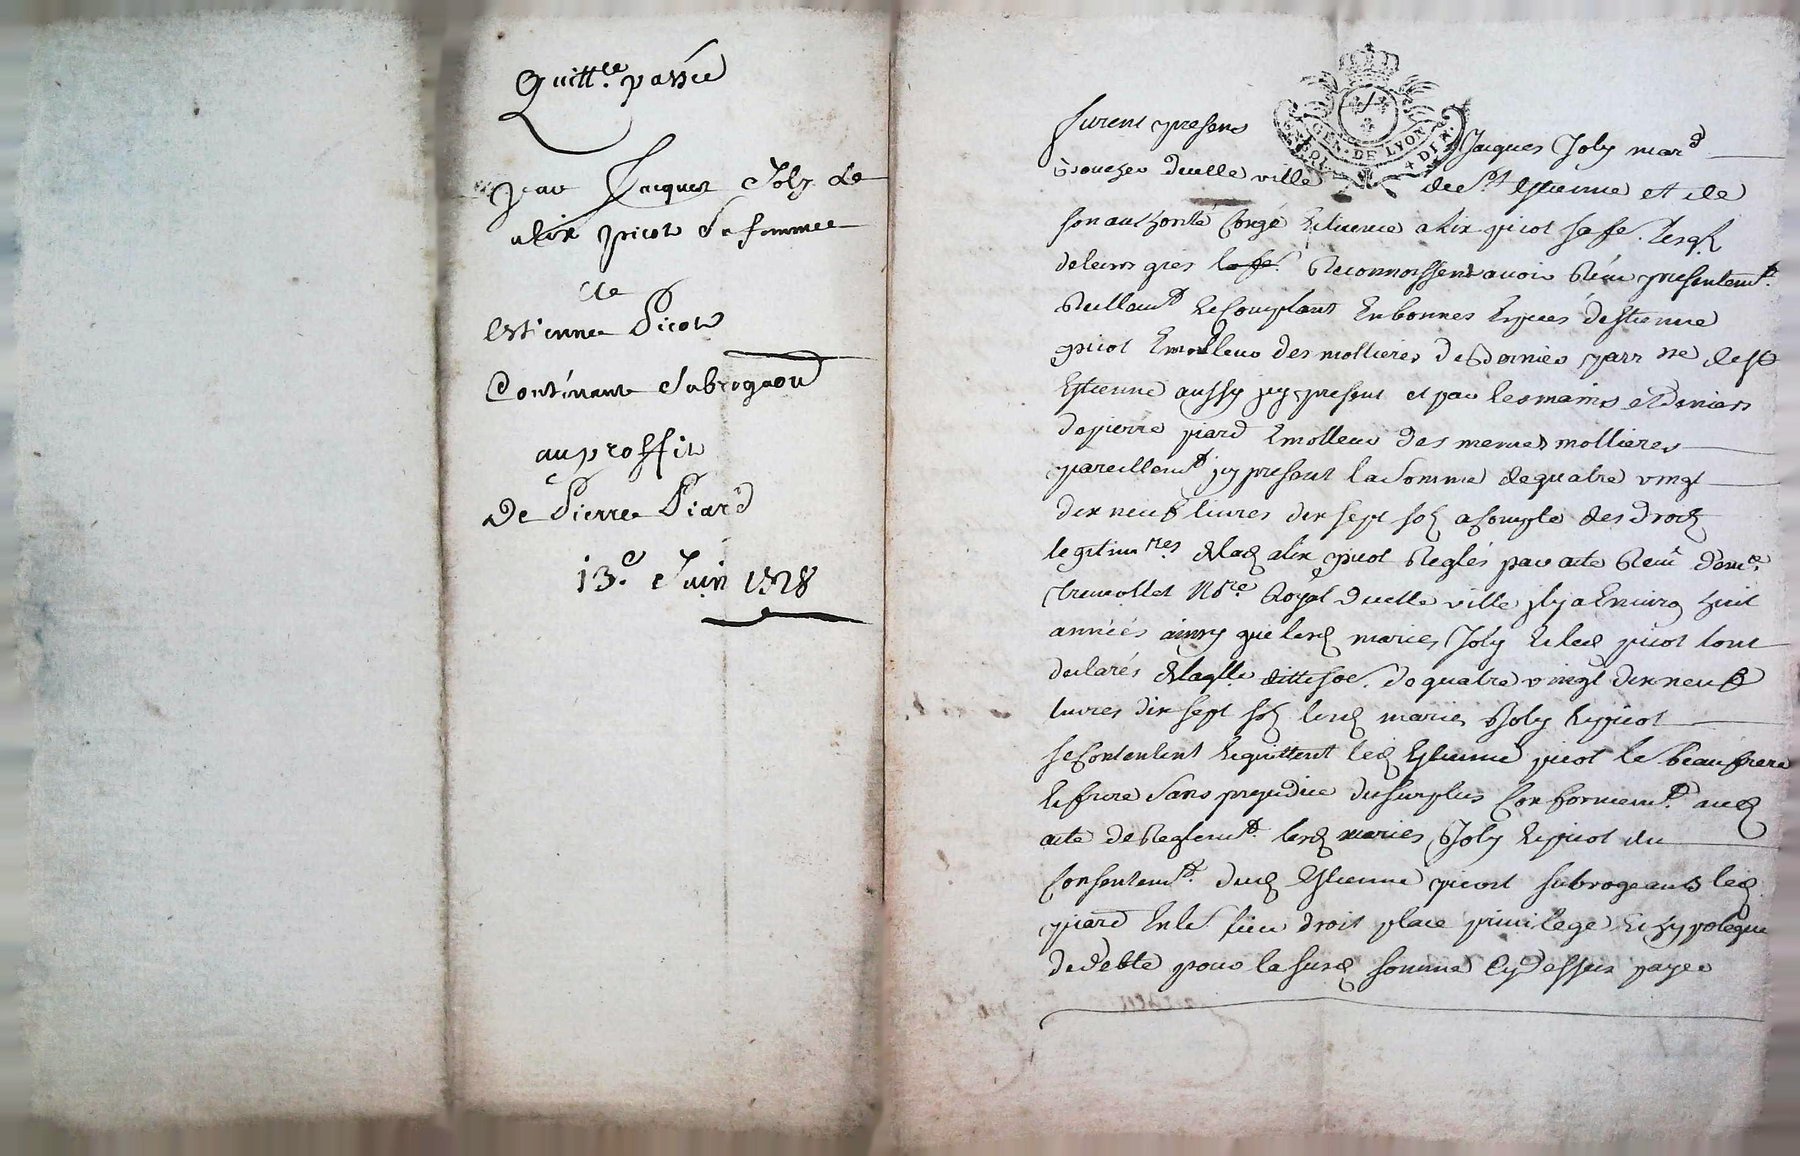 Quitt.ce passée
par Jacques Joly et
alix picot sa femme
de
Estienne Picot
Contenant Subrogaon
au proffit
De Pierre Piard
13.e Juin 1728
GEN. DE LYON
furent presens Jacques Joly mar.d
boucher dicelle ville de St Estienne et de
son authorité congé licence alix picot sa fe. lesq.
de leurs grés la fe. Reconnoissent avoir Reçu presentem.t
Reellem.t et comptant en bonnes especes d'estienne
picot Emolleur des mollieres parr ne de St
Estienne aussy icy present et par les mains et deniers
de pierre piard Emolleur des memes mollieres
pareillem.t icy present la Somme de quatre vingt
dix neuf livres dix sept sols a compte des droits
legitim.res de lad alix picot Reglés par acte Receu
No.re Royal dicelle ville il y a environ huit
années ainsy que lesd mariés Joly et led picot l'ont
declarés de laq.lle ditte soe. de quatre vingt dix neuf
livres dix sept sols lesd mariés Joly et picot
se contentent et quittent led Estienne picot le. beaufrere
et frere sans prejudice du surplus conformem.t aud
acte de Reglem.t lesd mariés Joly et picot du
consentem.t dud Estienne picot subrogeants led
piard en le. lieu droit place privilege et hypoteque
de dette pour la susd somme cy dessus payée